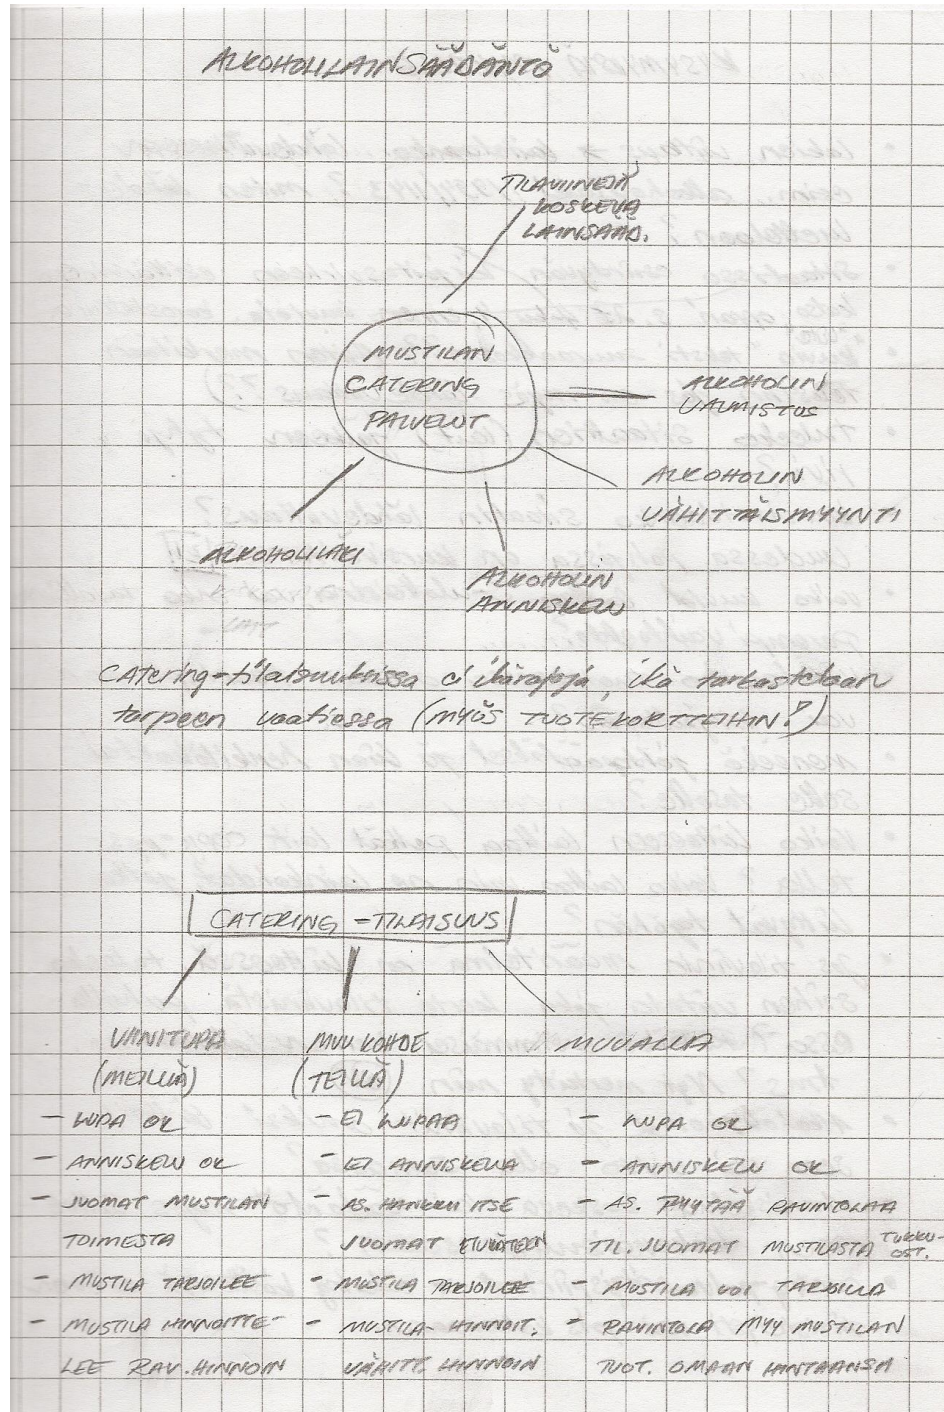 ALKOHOLILAINSÄÄDÄNTÖ
TILAVIINEJÄ
KOSKEVA
LAINSÄÄD.
MUSTILAN
CATERING
PALVELUT
ALKOHOLIN
VALMISTUS
ALKOHOLIN
VÄHITTÄISMYYNTI
ALKOHOLILAKI
ALKOHOLIN
ANNISKELU
CATERING-tilaisuuksissa ei ikärajoja, ikä tarkastetaan
tarpeen vaatiessa (MYÖS TUOTEKORTTEIHIN!)
CATERING -TILAISUUS
VIINITUPA
(MEILLÄ)
- LUPA OK
- ANNISKELU OK
- JUOMAT MUSTILAN
TOIMESTA
- MUSTILA TARJOILEE
- MUSTILA HINNOITTE-
LEE RAV. HINNOIN
MUU KOHDE
(TEILLÄ)
- EI LUPAA
- EI ANNISKELUA
- AS. HANKKII ITSE
JUOMAT ETUKÄTEEN
- MUSTILA TARJOILEE
- MUSTILA HINNOIT.
VÄHITT. HINNOIN
MUUALLA
- LUPA OK
- ANNISKELU OK
- AS. PYYTÄÄ RAVINTOLAA
TIL. JUOMAT MUSTILASTA TUKKU-
OST.
- MUSTILA VOI TARJOILLA
- RAVINTOLA MYY MUSTILAN
TUOT. OMAAN HINTAANSA